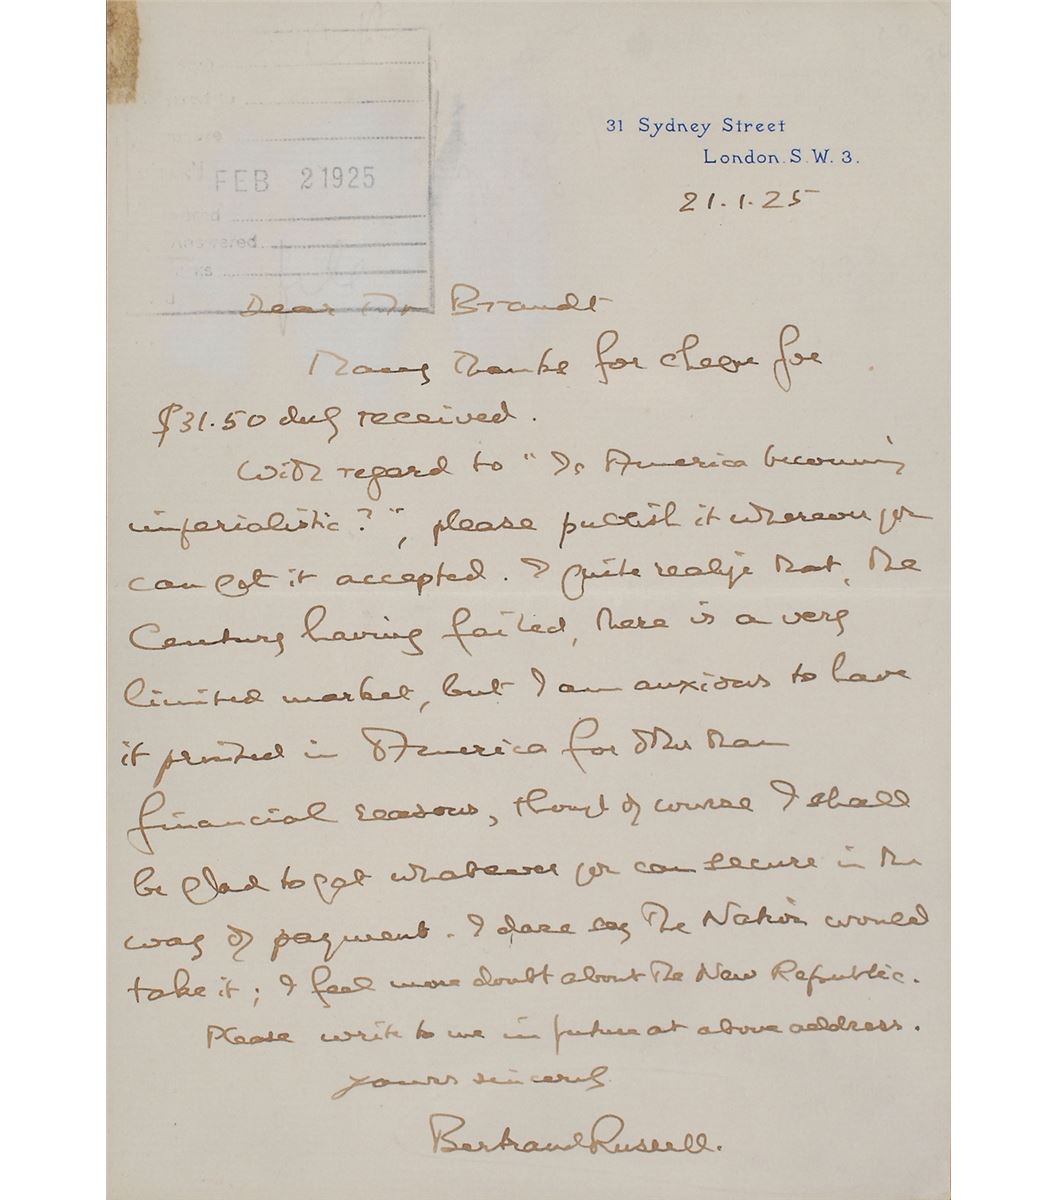 FEB 2 1925
Answered
31 Sydney Street
London. S. W. 3.
21.1.25
Dear Mr Brandt
Many thanks for cheque for
$31.50 duly received.
With regard to "Is America becoming
imperialistic?", please publish it wherever you
can get it accepted. I quite realize that, the
Century having failed, there is a very
limited market, but I am anxious to have
it printed in America for other than
financial reasons, though of course I shall
be glad to get whatever you can secure in the
way of payment. I dare say The Nation would
take it; I feel more doubt about The New Republic.
Please write to me in future at above address.
Yours sincerely
Bertrand Russell.